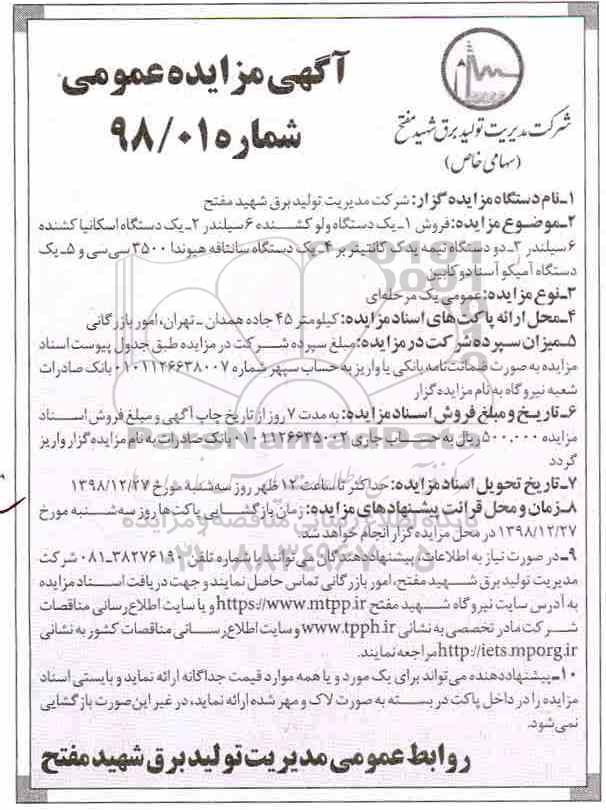 آگهی مزایده عمومی
شماره ۹۸/۰۱
شرکت مدیریت تولید برق شهید مفتح
(سهامی خاص)
۱ـ نام دستگاه مزایده گزار: شرکت مدیریت تولید برق شهید مفتح
۲ـ موضوع مزایده: فروش ۱ـ یک دستگاه ولو کشنده ۶ سیلندر ۲ـ یک دستگاه اسکانیا کشنده
۶ سیلندر ۳ـ دو دستگاه نیمه یدک کانتینر بر ۴ـ یک دستگاه سانتافه هیوندا ۳۵۰۰ سی سی و ۵ـ یک
دستگاه آمیکو آسنا دو کابین
۳ـ نوع مزایده: عمومی یک مرحله‌ای
۴ـ محل ارائه پاکت‌های اسناد مزایده: کیلومتر ۴۵ جاده همدان ـ تهران، امور بازرگانی
۵ـ میزان سپرده شرکت در مزایده: مبلغ سپرده شرکت در مزایده طبق جدول پیوست اسناد
مزایده به صورت ضمانت نامه بانکی یا واریز به حساب سپهر شماره ۰۱۰۱۱۲۶۶۳۸۰۰۷ بانک صادرات
شعبه نیروگاه به نام مزایده گزار
۶ـ تاریخ و مبلغ فروش اسناد مزایده: به مدت ۷ روز از تاریخ چاپ آگهی و مبلغ فروش اسناد
مزایده ۵۰۰،۰۰۰ ریال به حساب جاری ۰۱۰۱۱۲۶۶۳۵۰۰۲ بانک صادرات به نام مزایده گزار واریز
گردد
۷ـ تاریخ تحویل اسناد مزایده: حداکثر تا ساعت ۱۲ ظهر روز سه‌شنبه مورخ ۱۳۹۸/۱۲/۲۷
۸ـ زمان و محل قرائت پیشنهادهای مزایده: زمان بازگشایی پاکت‌ها روز سه‌شنبه مورخ
۱۳۹۸/۱۲/۲۷ در محل مزایده گزار انجام خواهد شد.
۹ـ در صورت نیاز به اطلاعات پیشنهاددهندگان می‌توانند با شماره تلفن ۳۸۲۷۶۱۹۰ـ۰۸۱ شرکت
مدیریت تولید برق شهید مفتح، امور بازرگانی تماس حاصل نمایند و جهت دریافت اسناد مزایده
به آدرس سایت نیروگاه شهید مفتح https://www.mtpp.ir و یا سایت اطلاع رسانی مناقصات
شرکت مادر تخصصی به نشانی www.tpph.ir و سایت اطلاع رسانی مناقصات کشور به نشانی
http://iets.mporg.ir مراجعه نمایند.
۱۰ـ پیشنهاددهنده می‌تواند برای یک مورد و یا همه موارد قیمت جداگانه ارائه نماید و بایستی اسناد
مزایده را در داخل پاکت در بسته به صورت لاک و مهر شده ارائه نماید، در غیر این صورت بازگشایی
نمی‌شود.
روابط عمومی مدیریت تولید برق شهید مفتح
ParsNamadData
پایگاه اطلاع رسانی مناقصه و مزایده
۰۲۱-۸۸۳۴۹۶۷۰-۵